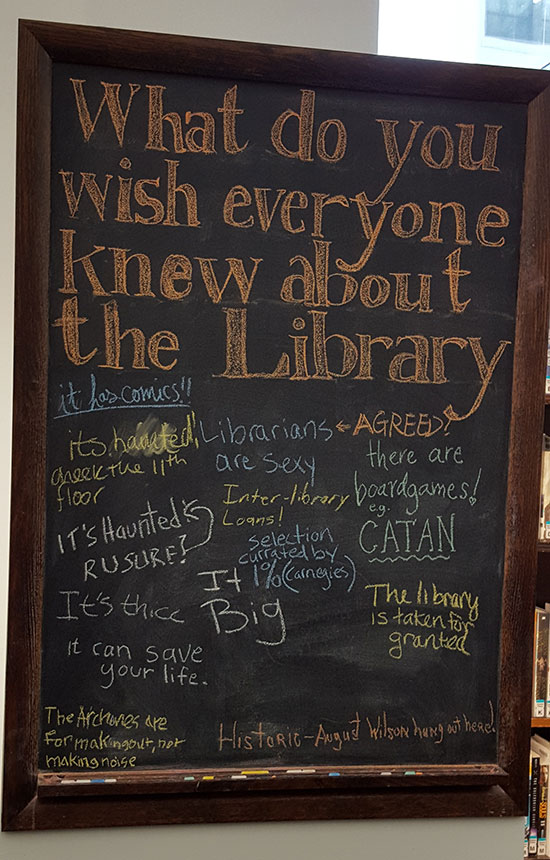 What do you
wish everyone
knew about
the Library
it has comics!!
its haunted!
cheek the 11th
floor
Librarians
are sexy
← AGREED!
there are
boardgames!
eg.
CATAN
Inter-library
Loans!
IT'S Haunted?
R U SURE?!
selection
currated by
1% (Carnegies)
It's thicc
It
Big
The library
is taken for
granted
it can save
your life.
The Archives are
for making out, not
making noise
Historic - August Wilson hung out here!